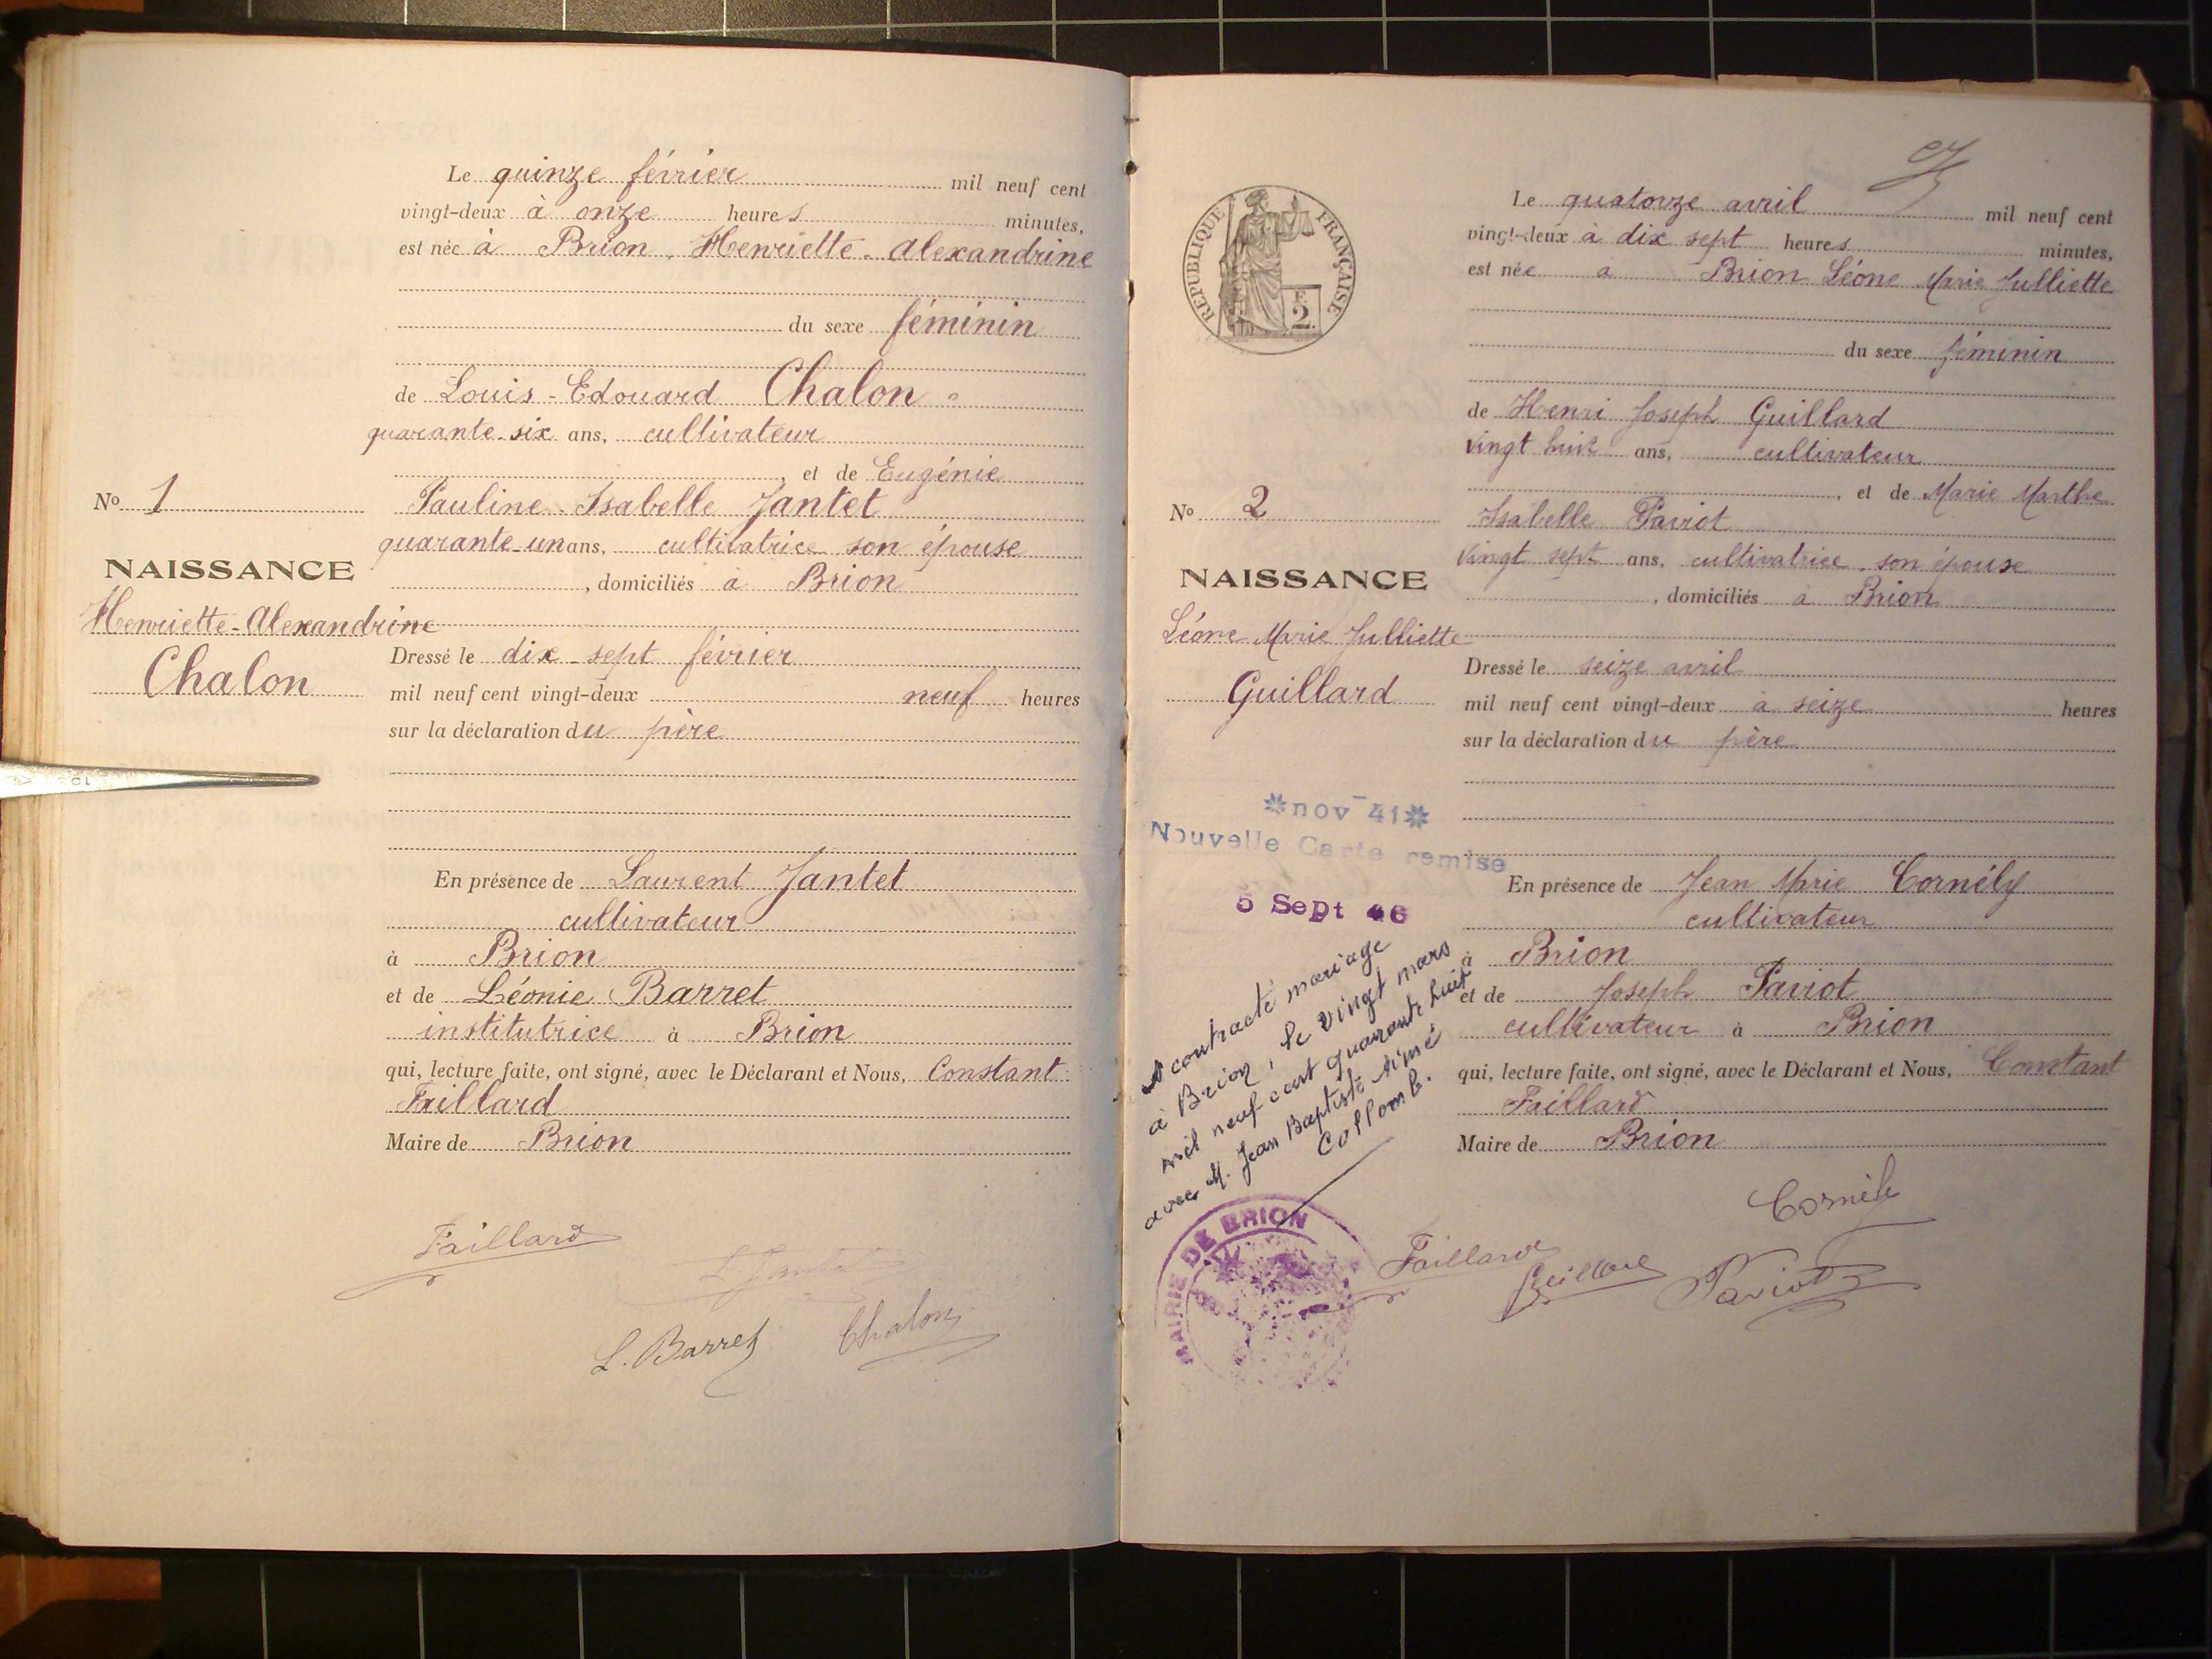 Le quinze février mil neuf cent
vingt-deux à onze heures minutes,
est née à Brion, Henriette-Alexandrine
du sexe féminin
de Louis-Edouard Chalon
quarante-six ans, cultivateur
, et de Eugénie
Pauline-Isabelle Jantet
quarante-un ans, cultivatrice son épouse
, domiciliés à Brion
No 1
NAISSANCE
Henriette-Alexandrine
Chalon
Dressé le dix-sept février
mil neuf cent vingt-deux neuf heures
sur la déclaration du père
En présence de Laurent Jantet
cultivateur
à Brion
et de Léonie Barret
institutrice à Brion
qui, lecture faite, ont signé, avec le Déclarant et Nous, Constant
Faillard
Maire de Brion
Faillard
L. Jantet
L. Barret
Chalon
REPUBLIQUE FRANÇAISE
2 F
Le quatorze avril mil neuf cent
vingt-deux à dix sept heures minutes,
est née à Brion Léone Marie Julliette
du sexe féminin
de Henri Joseph Guillard
vingt huit ans, cultivateur
, et de Marie Marthe
Isabelle Paviot
vingt sept ans, cultivatrice, son épouse
, domiciliés à Brion
No 2
NAISSANCE
Léone Marie Julliette
Guillard
Dressé le seize avril
mil neuf cent vingt-deux à seize heures
sur la déclaration du père
nov - 41
Nouvelle Carte remise
5 Sept 46
A contracté mariage
à Brion, le vingt mars
mil neuf cent quarante huit
avec M. Jean Baptiste Aimé
Collomb.
MAIRIE DE BRION
En présence de Jean Marie Cornély
cultivateur
à Brion
et de Joseph Paviot
cultivateur à Brion
qui, lecture faite, ont signé, avec le Déclarant et Nous, Constant
Faillard
Maire de Brion
Cornély
Faillard
Guillard
Paviot